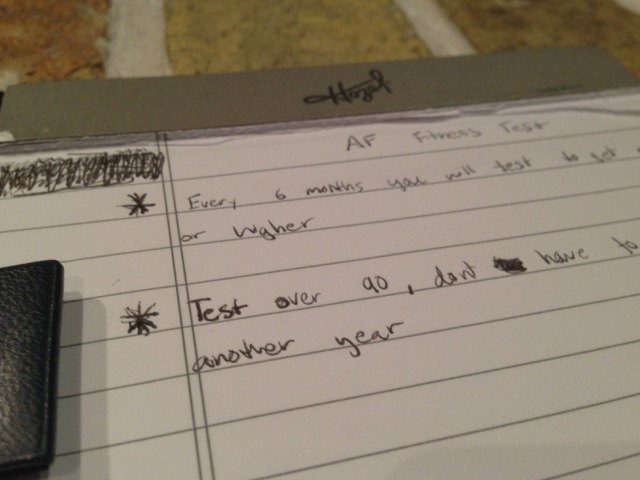 Hazel
AF Fitness Test
* Every 6 months you will test to get
or higher
* Test over 90, dont have to
another year